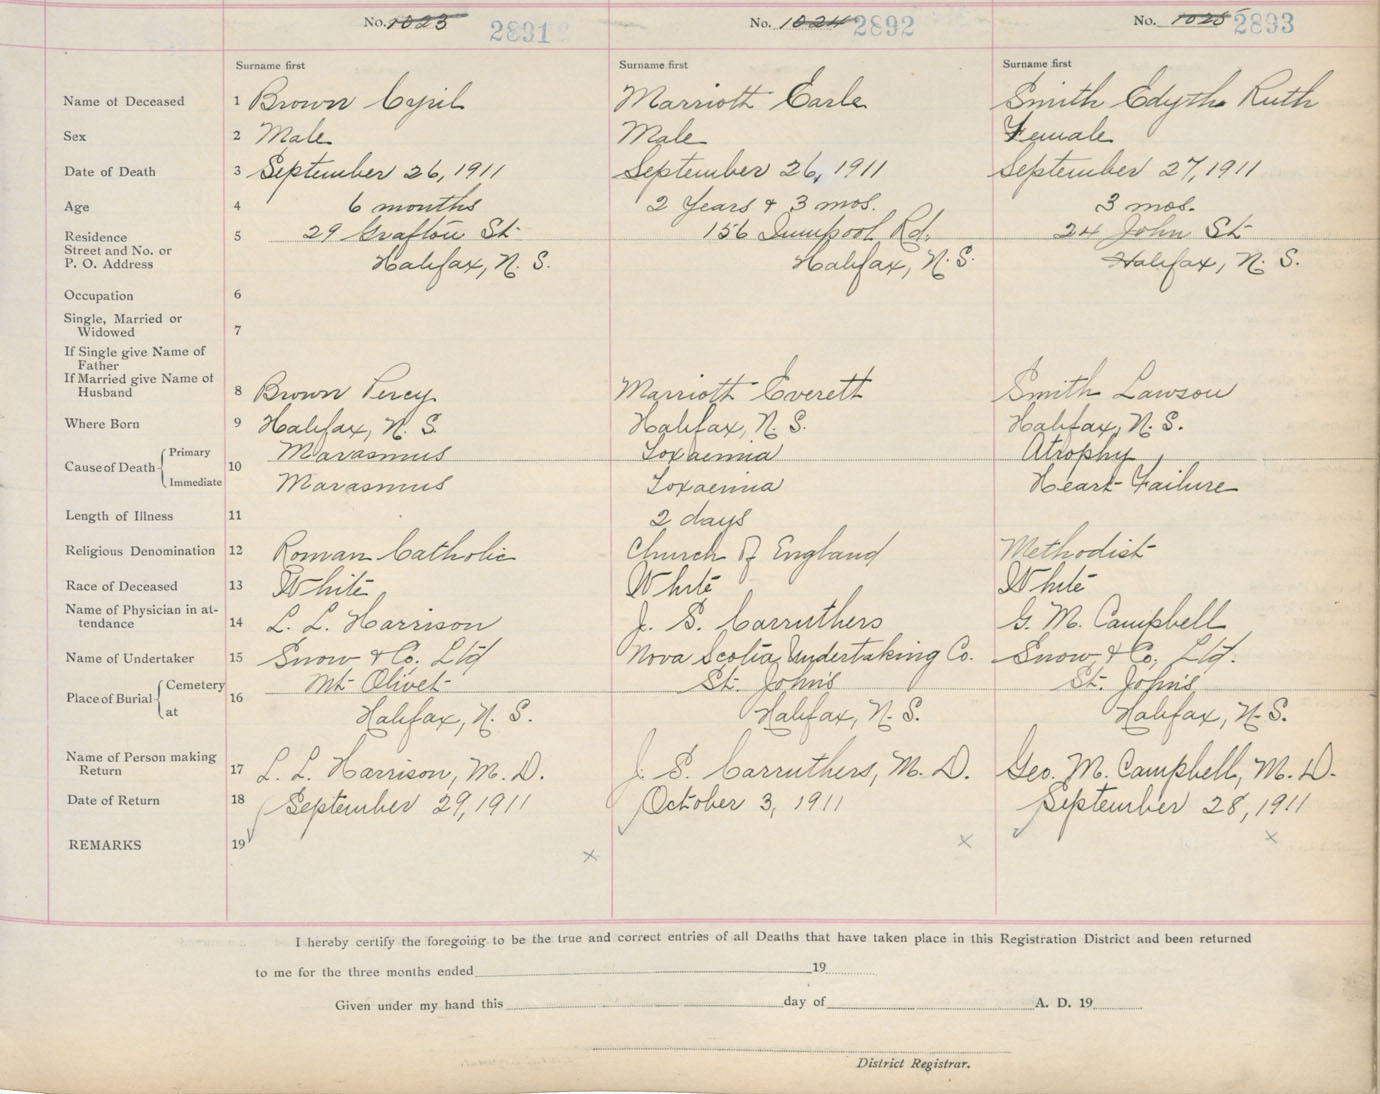 No. 1023 2891
No. 1024 2892
No. 1025 2893
Surname first Surname first Surname first
Name of Deceased 1 Brown Cyril Marrioth Earle Smith Edythe Ruth
Sex 2 Male Male Female
Date of Death 3 September 26, 1911 September 26, 1911 September 27, 1911
Age 4 6 months 2 Years & 3 mos. 3 mos.
Residence 5 29 Grafton St 156 Quinpool Rd. 24 John St
Street and No. or
P. O. Address Halifax, N. S. Halifax, N. S. Halifax, N. S.
Occupation 6
Single, Married or
Widowed 7
If Single give Name of
Father
If Married give Name of
Husband 8 Brown Percy Marrioth Everett Smith Lawson
Where Born 9 Halifax, N. S. Halifax, N. S. Halifax, N. S.
Cause of Death 10 Primary Marasmus Toxaemia Atrophy
Immediate Marasmus Toxaemia Heart Failure
Length of Illness 11 2 days
Religious Denomination 12 Roman Catholic Church Of England Methodist
Race of Deceased 13 White White White
Name of Physician in at-
tendance 14 L. L. Harrison J. S. Carruthers G. M. Campbell
Name of Undertaker 15 Snow & Co. Ltd Nova Scotia Undertaking Co. Snow & Co. Ltd.
Place of Burial 16 Cemetery Mt Olivet St. John's St. John's
at Halifax, N. S. Halifax, N. S. Halifax, N. S.
Name of Person making
Return 17 L. L. Harrison, M. D. J. S. Carruthers, M. D. Geo. M. Campbell, M. D.
Date of Return 18 September 29, 1911 October 3, 1911 September 28, 1911
REMARKS 19
x x x
I hereby certify the foregoing to be the true and correct entries of all Deaths that have taken place in this Registration District and been returned
to me for the three months ended 19
Given under my hand this day of A. D. 19
District Registrar.